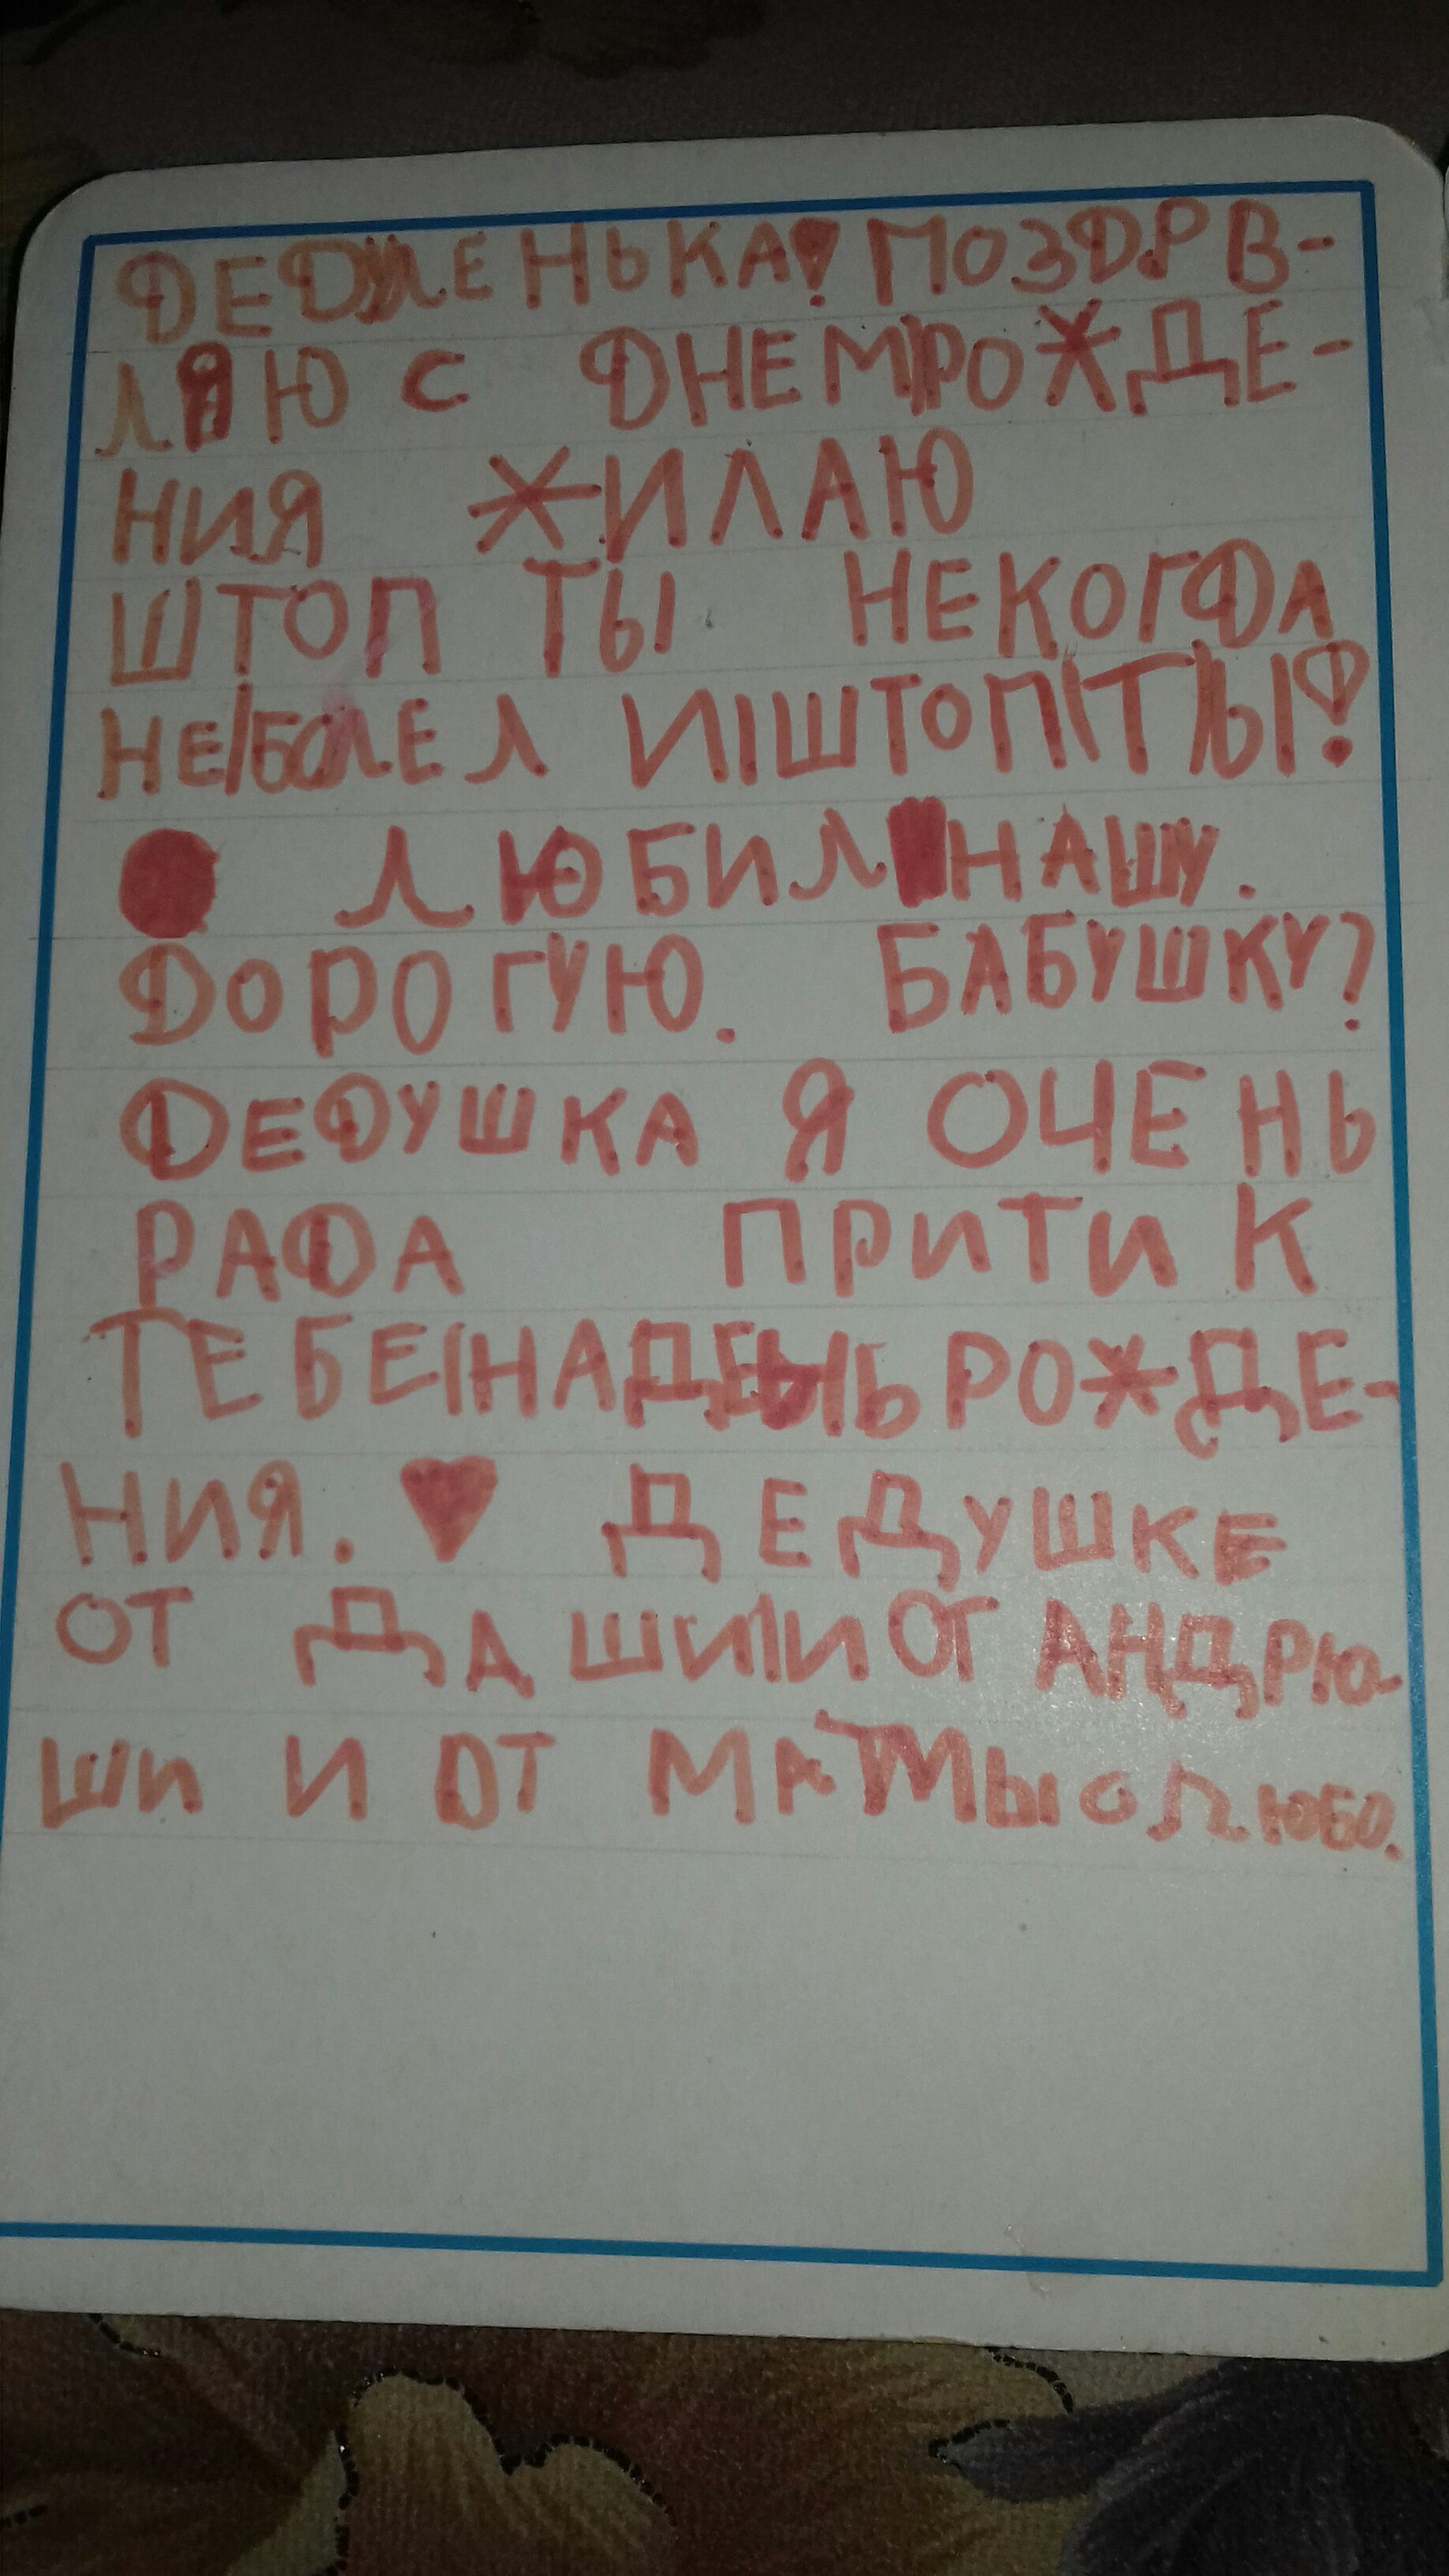 ДЕДУЛЕНЬКА! ПОЗДРВ-
ЛЯЮ С ДНЕМ РОЖДЕ-
НИЯ ЖИЛАЮ
ШТОП ТЫ НЕКОГДА
НЕ/БОЛЕЛ И|ШТОП|ТЫ!
ЛЮБИЛ НАШУ.
ДОРОГУЮ. БАБУШКУ?
ДЕДУШКА Я ОЧЕНЬ
РАДА ПРИТИ К
ТЕБЕ|НАДЕНЬ РОЖДЕ-
НИЯ. ♥ ДЕДУШКЕ
ОТ ДАШИ|И ОТ АНДРЮ-
ШИ И ОТ МАТМЫ О ЛЮБО.